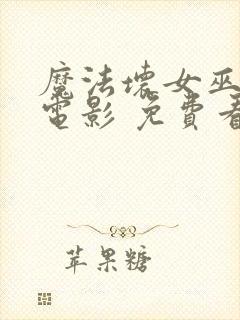 魔法壞女巫
電影 免費看
苹果糖